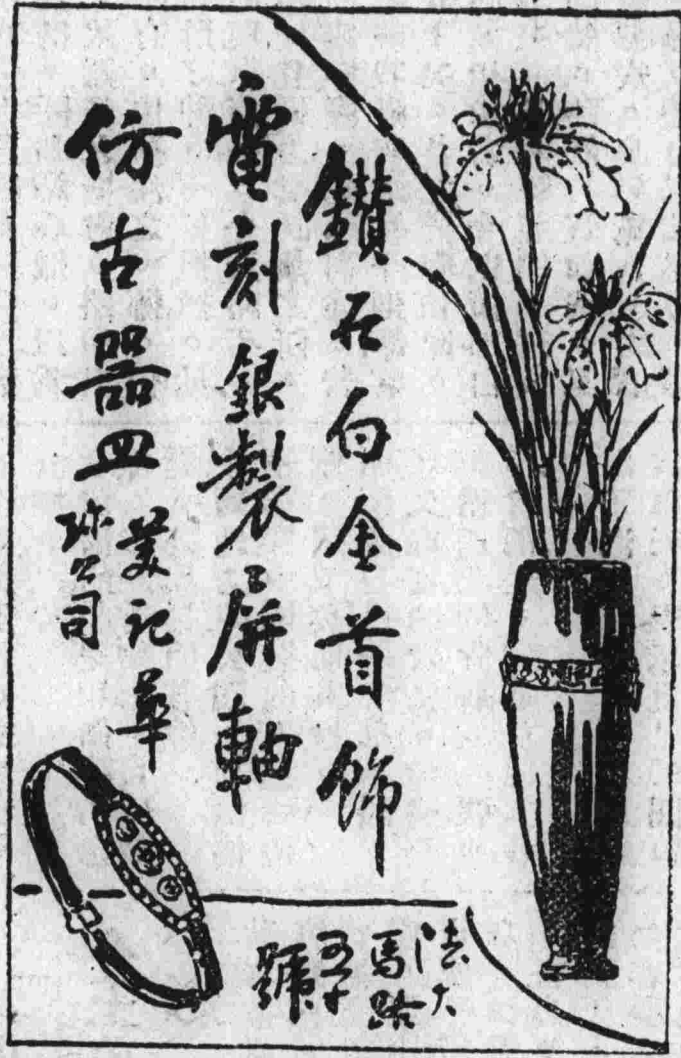 鑽石白金首飾
電刻銀製屏軸
仿古器皿
美記華
珎公司
法大
馬路
五十
號